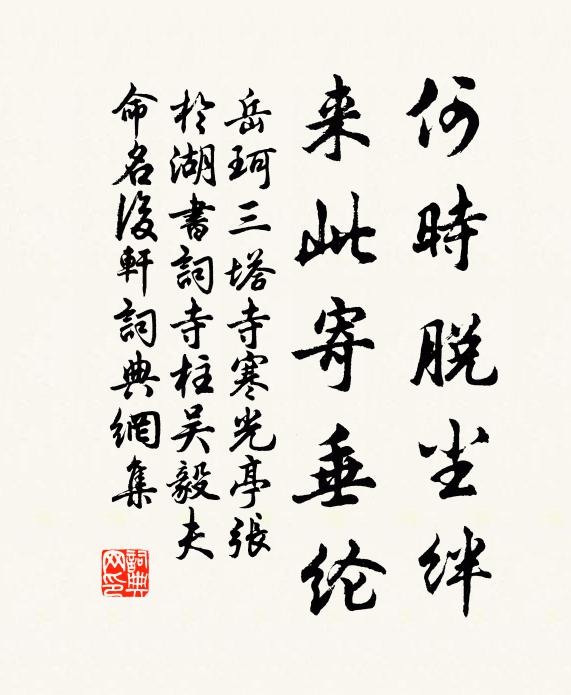 何時脱尘絆
来此寄垂纶
岳珂三塔寺寒光亭張
於湖書詞寺柱吴毅夫
命名後軒詞典網集
詞典
网印